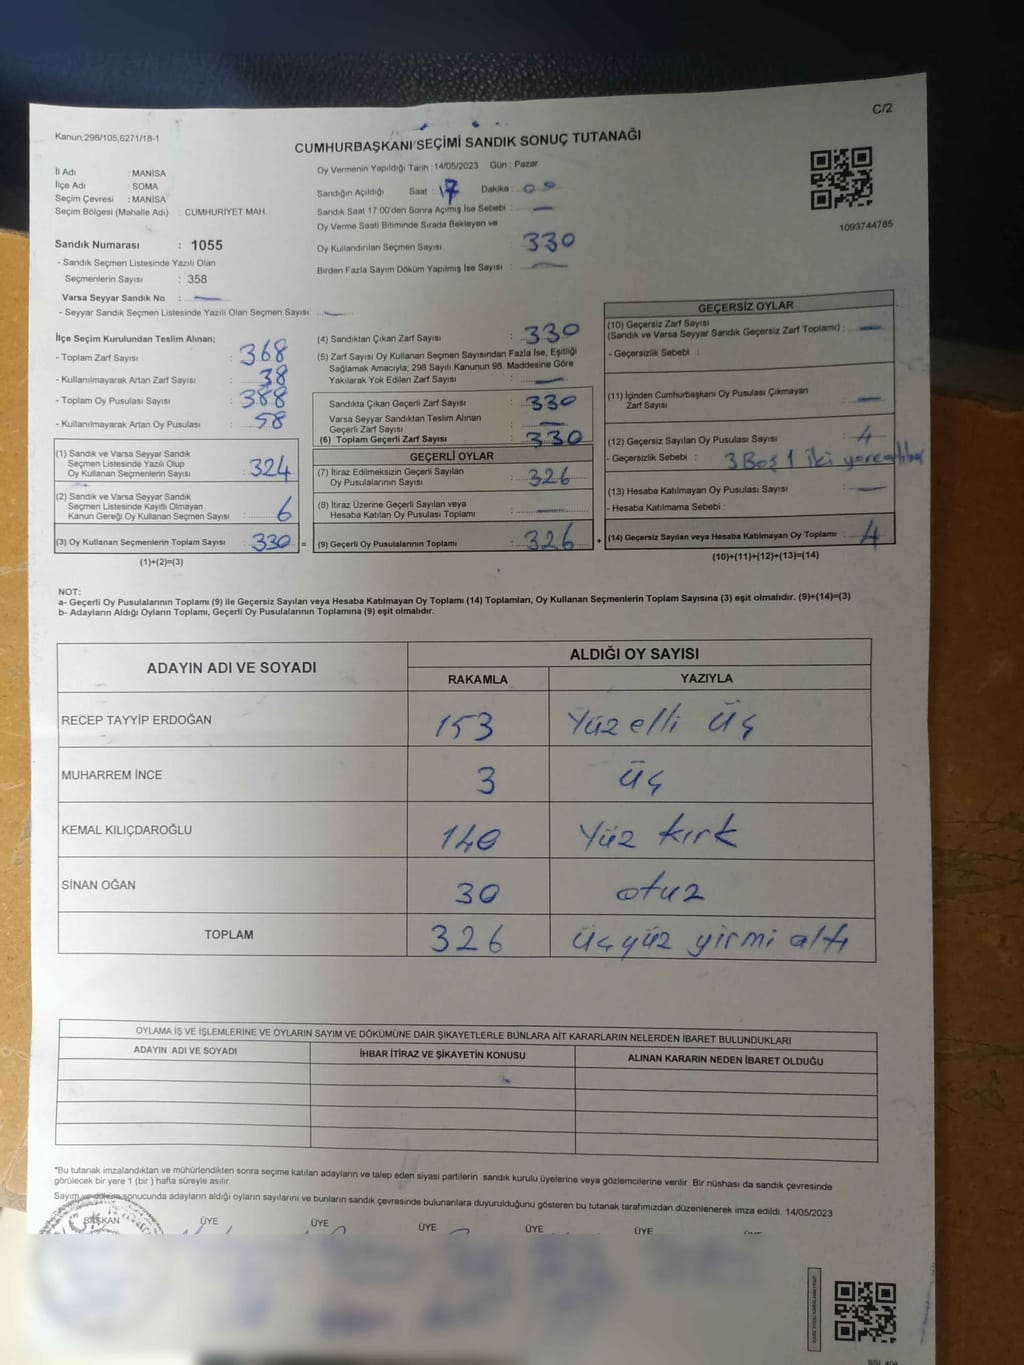 C/2
Kanun;298/105,6271/18-1
CUMHURBAŞKANI SEÇİMİ SANDIK SONUÇ TUTANAĞI
İl Adı : MANİSA
İlçe Adı : SOMA
Seçim Çevresi : MANİSA
Seçim Bölgesi (Mahalle Adı) : CUMHURİYET MAH.
Sandık Numarası : 1055
- Sandık Seçmen Listesinde Yazılı Olan
Seçmenlerin Sayısı : 358
Varsa Seyyar Sandık No : —
- Seyyar Sandık Seçmen Listesinde Yazılı Olan Seçmen Sayısı: —
Oy Vermenin Yapıldığı Tarih :14/05/2023 Gün : Pazar
Sandığın Açıldığı Saat : 17 Dakika : 00
Sandık Saat 17:00'den Sonra Açılmış İse Sebebi : —
Oy Verme Saati Bitiminde Sırada Bekleyen ve
Oy Kullandırılan Seçmen Sayısı : 330
Birden Fazla Sayım Döküm Yapılmış İse Sayısı : —
1093744785
İlçe Seçim Kurulundan Teslim Alınan;
- Toplam Zarf Sayısı : 368
- Kullanılmayarak Artan Zarf Sayısı : 38
- Toplam Oy Pusulası Sayısı : 388
- Kullanılmayarak Artan Oy Pusulası : 58
(1) Sandık ve Varsa Seyyar Sandık
Seçmen Listesinde Yazılı Olup
Oy Kullanan Seçmenlerin Sayısı : 324
(2) Sandık ve Varsa Seyyar Sandık
Seçmen Listesinde Kayıtlı Olmayan
Kanun Gereği Oy Kullanan Seçmen Sayısı : 6
(3) Oy Kullanan Seçmenlerin Toplam Sayısı : 330 =
(1)+(2)=(3)
(4) Sandıktan Çıkan Zarf Sayısı : 330
(5) Zarf Sayısı Oy Kullanan Seçmen Sayısından Fazla İse, Eşitliği
Sağlamak Amacıyla; 298 Sayılı Kanunun 98. Maddesine Göre
Yakılarak Yok Edilen Zarf Sayısı : —
Sandıkta Çıkan Geçerli Zarf Sayısı : 330
Varsa Seyyar Sandıktan Teslim Alınan
Geçerli Zarf Sayısı : —
(6) Toplam Geçerli Zarf Sayısı : 330
GEÇERLİ OYLAR
(7) İtiraz Edilmeksizin Geçerli Sayılan
Oy Pusulalarının Sayısı : 326
(8) İtiraz Üzerine Geçerli Sayılan veya
Hesaba Katılan Oy Pusulası Toplamı : —
(9) Geçerli Oy Pusulalarının Toplamı : 326 +
GEÇERSİZ OYLAR
(10) Geçersiz Zarf Sayısı
(Sandık ve Varsa Seyyar Sandık Geçersiz Zarf Toplamı) : —
- Geçersizlik Sebebi :
(11) İçinden Cumhurbaşkanı Oy Pusulası Çıkmayan
Zarf Sayısı : —
(12) Geçersiz Sayılan Oy Pusulası Sayısı : 4
- Geçersizlik Sebebi : 3 Boş 1 iki yere
(13) Hesaba Katılmayan Oy Pusulası Sayısı : —
- Hesaba Katılmama Sebebi :
(14) Geçersiz Sayılan veya Hesaba Katılmayan Oy Toplamı : 4
(10)+(11)+(12)+(13)=(14)
NOT:
a- Geçerli Oy Pusulalarının Toplamı (9) ile Geçersiz Sayılan veya Hesaba Katılmayan Oy Toplamı (14) Toplamları, Oy Kullanan Seçmenlerin Toplam Sayısına (3) eşit olmalıdır. (9)+(14)=(3)
b- Adayların Aldığı Oyların Toplamı, Geçerli Oy Pusulalarının Toplamına (9) eşit olmalıdır.
ADAYIN ADI VE SOYADI ALDIĞI OY SAYISI
RAKAMLA YAZIYLA
RECEP TAYYİP ERDOĞAN 153 Yüz elli üç
MUHARREM İNCE 3 üç
KEMAL KILIÇDAROĞLU 140 Yüz kırk
SİNAN OĞAN 30 otuz
TOPLAM 326 üçyüz yirmi altı
OYLAMA İŞ VE İŞLEMLERİNE VE OYLARIN SAYIM VE DÖKÜMÜNE DAİR ŞİKAYETLERLE BUNLARA AİT KARARLARIN NELERDEN İBARET BULUNDUKLARI
ADAYIN ADI VE SOYADI İHBAR İTİRAZ VE ŞİKAYETİN KONUSU ALINAN KARARIN NEDEN İBARET OLDUĞU
*Bu tutanak imzalandıktan ve mühürlendikten sonra seçime katılan adayların ve talep eden siyasi partilerin sandık kurulu üyelerine veya gözlemcilerine verilir .Bir nüshası da sandık çevresinde
görülecek bir yere 1 (bir ) hafta süreyle asılır.
Sayım ve döküm sonucunda adayların aldığı oyların sayılarını ve bunların sandık çevresinde bulunanlara duyurulduğunu gösteren bu tutanak tarafımızdan düzenlenerek imza edildi. 14/05/2023
BAŞKAN ÜYE ÜYE ÜYE ÜYE ÜYE